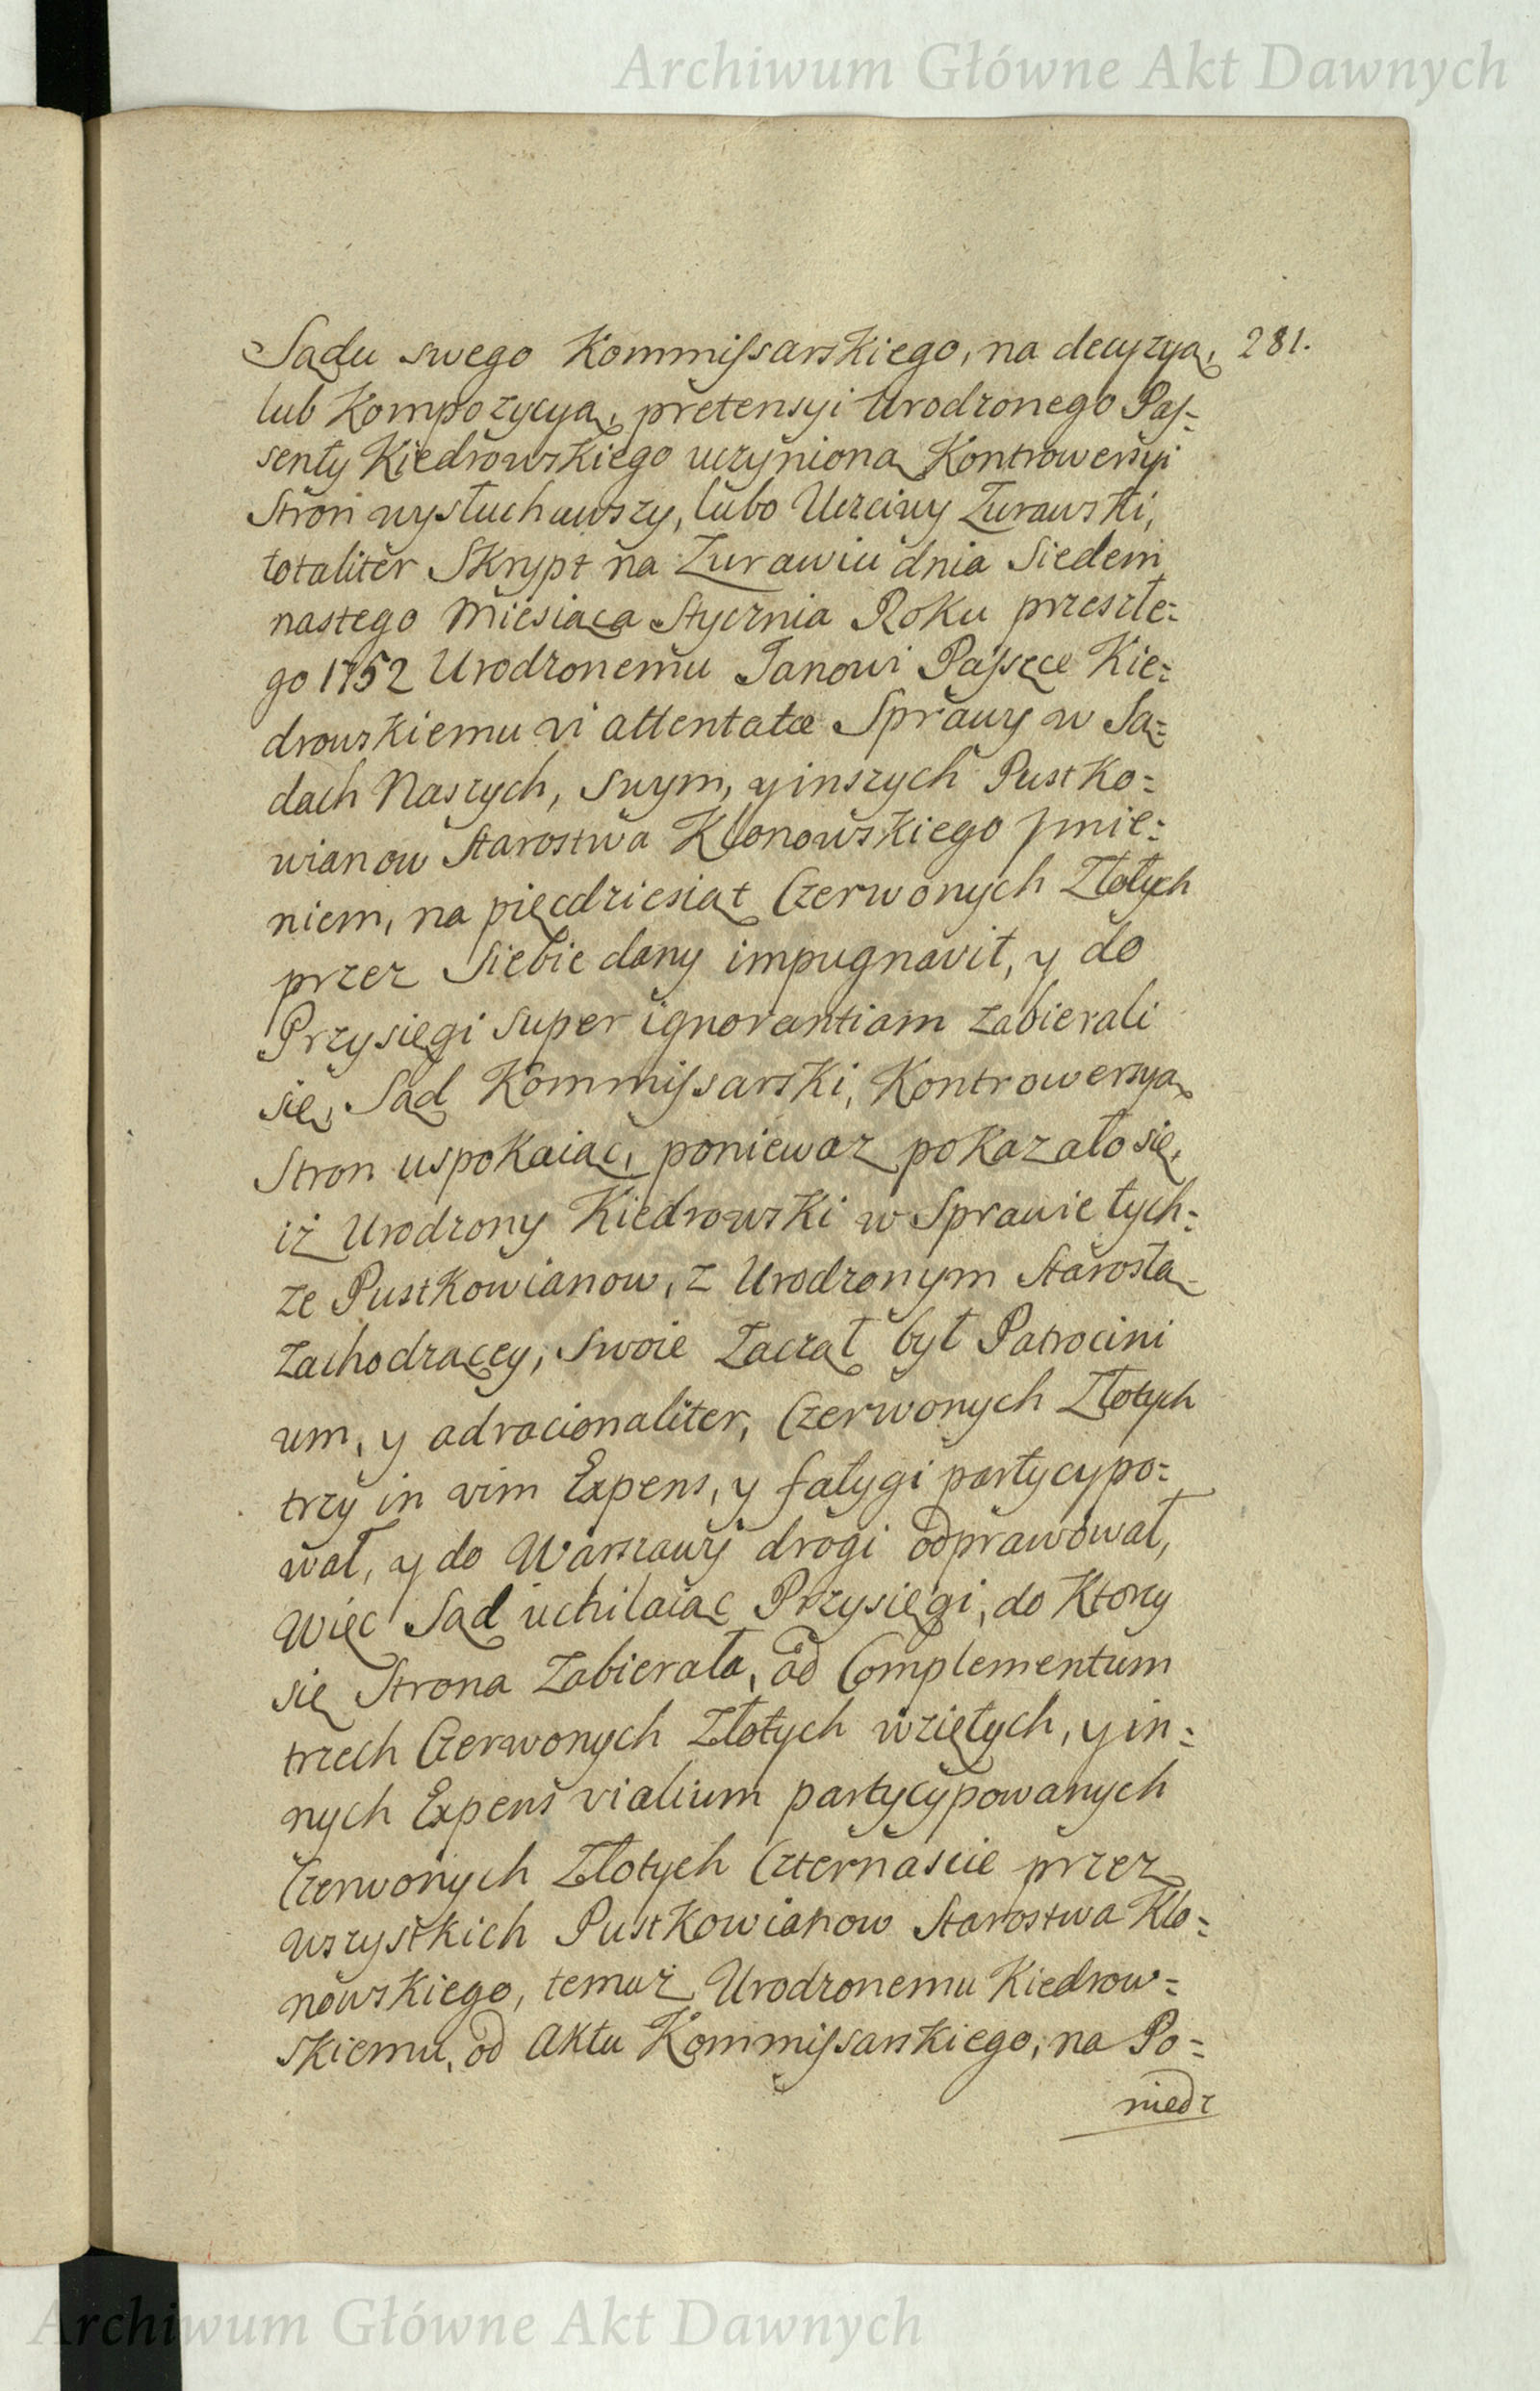 Archiwum Główne Akt Dawnych
281.
Sądu swego Kommissarskiego, na decyzyą,
lub Kompozycyą, pretensyi Urodzonego Pas=
senty Kiedrowskiego uczynioną Kontrowersyi
Stron wysłuchawszy, lubo Uczciwy Zurawski,
totaliter Skrypt na Zurawiu dnia Siedem
nastego Miesiąca Stycznia Roku przeszłe=
go 1752 Urodzonemu Janowi Passęce Kie=
drowskiemu vi attentatæ Sprawy w Są=
dach Naszych, Swym, y inszych Pustko=
wianow Starostwa Klonowskiego Jmie=
niem, na pięcdziesiąt Czerwonych Złotych
przez Siebie dany impugnavit, y do
Przysięgi super ignorantiam zabierali
się, Sąd Kommissarski, Kontrowersyą
Stron uspokaiaiąc, poniewaz pokazało się,
iż Urodzony Kiedrowski w Sprawie tych=
ze Pustkowianow, z Urodzonym Starostą
zachodzącey, swoie zaczął był Patrocini
um, y ad racionaliter, Czerwonych Złotych
trzy in vim Expens, y fatygi partycypo=
wał, y do Warszawy drogi odprawował,
Więc Sąd uchilaiąc Przysięgi, do Ktory
się Strona zabierała, ad Complementum
trzech Czerwonych Złotych wziętych, y in=
nych Expens vialium partycypowanych
Czerwonych Złotych Czternascie przez
wszystkich Pustkowianow Starostwa Klo=
nowskiego, temuż Urodzonemu Kiedrow=
skiemu, od Aktu Kommissarskiego, na Po=
niedz
Archiwum Główne Akt Dawnych